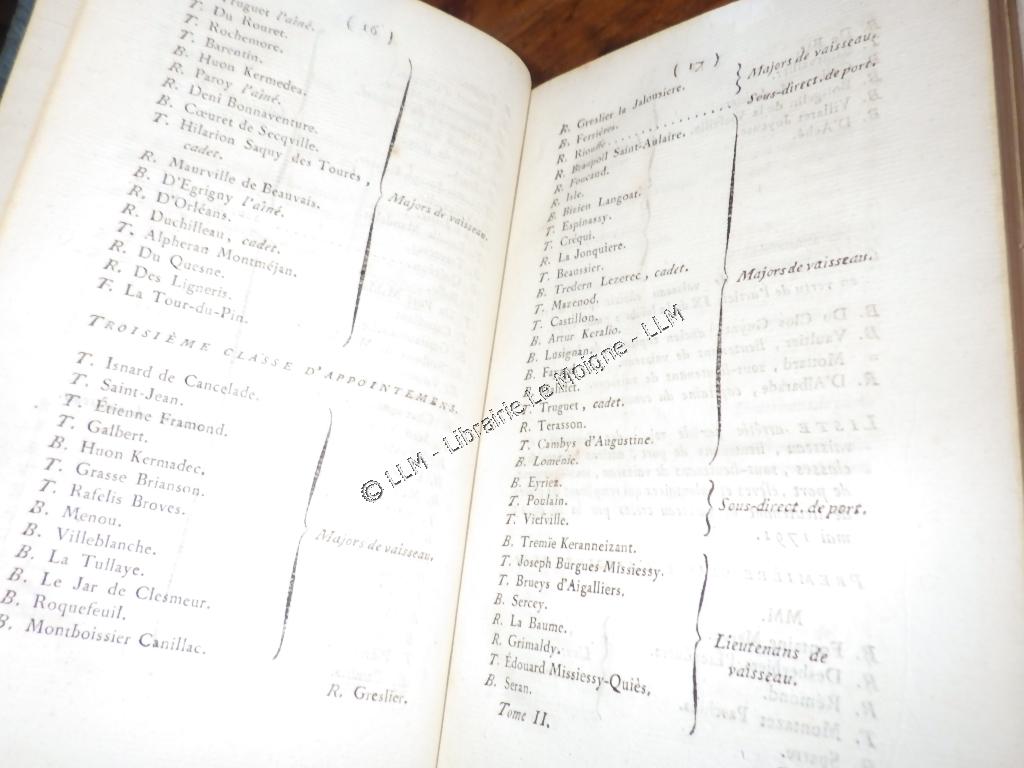 ( 16 )
Truguet l'aîné.
T. Du Rouret.
T. Rochemore.
T. Barentin.
B. Huon Kermedea.
R. Paroy l'aîné.
R. Deni Bonnaventure.
B. Cœuret de Secqville.
T. Hilarion Saquy des Tourés,
cadet.
R. Maurville de Beauvais.
B. D'Egrigny l'aîné.
R. D'Orléans.
R. Duchilleau, cadet.
T. Alpheran Montméjan.
R. Du Quesne.
R. Des Ligneris.
T. La Tour-du-Pin.
Majors de vaisseau.
TROISIÈME CLASSE D'APPOINTEMENS.
T. Isnard de Cancelade.
T. Saint-Jean.
T. Étienne Framond.
T. Galbert.
B. Huon Kermadec.
T. Grasse Brianson.
T. Rafelis Broves.
B. Menou.
B. Villeblanche.
B. La Tullaye.
B. Le Jar de Clesmeur.
B. Roquefeuil.
B. Montboissier Canillac.
Majors de vaisseau.
R. Greslier.
( 17 )
R. Greslier la Jalousiere.
B. Ferrières.
Majors de vaisseau.
R. Riouffe..................... Sous-direct. de port.
R. Beaupoil Saint-Aulaire.
R. Foucaud.
R. Isle.
B. Bizien Langoat.
T. Espinassy.
T. Créqui.
R. La Jonquiere.
T. Beaussier.
B. Tredern Lezerec, cadet.
T. Mazenod.
T. Castillon.
B. Artur Keralio.
B. Lusignan.
T. Truguet, cadet.
R. Terasson.
T. Cambys d'Augustine.
B. Loménie.
Majors de vaisseau.
B. Eyriez.
T. Poulain.
T. Viefville.
Sous-direct. de port.
B. Tremïe Keranneizant.
T. Joseph Burgues Missiessy.
T. Brueys d'Aigalliers.
B. Sercey.
R. La Baume.
R. Grimaldy.
T. Édouard Missiessy-Quiès.
B. Seran.
Lieutenans de
vaisseau.
Tome II.
© LLM - Librairie Le Moigne - LLM